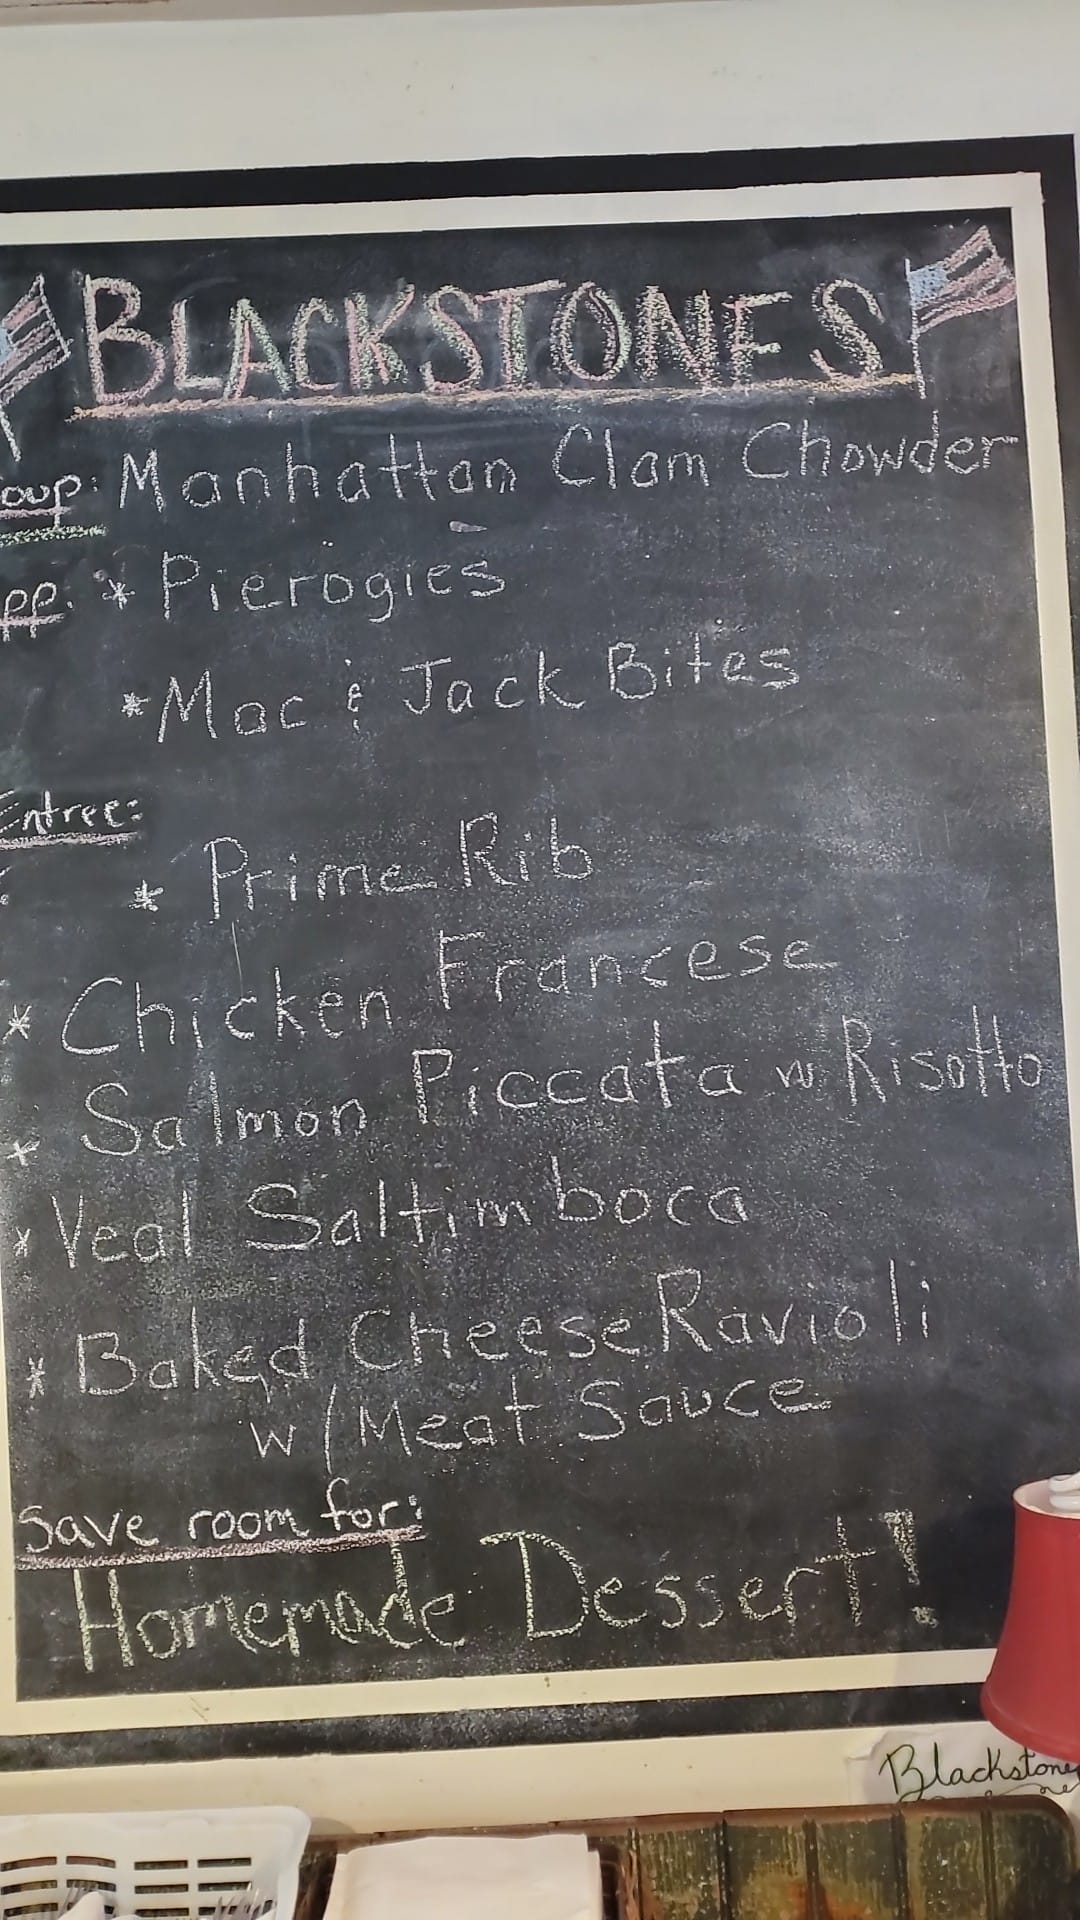 BLACKSTONES
oup: Manhattan Clam Chowder
pp. * Pierogies
* Mac & Jack Bites
Entree:
* Prime Rib
* Chicken Francese
* Salmon Piccata w Risotto
* Veal Saltimboca
* Baked Cheese Ravioli
w/ Meat Sauce
Save room for:
Homemade Dessert!
Blackstone